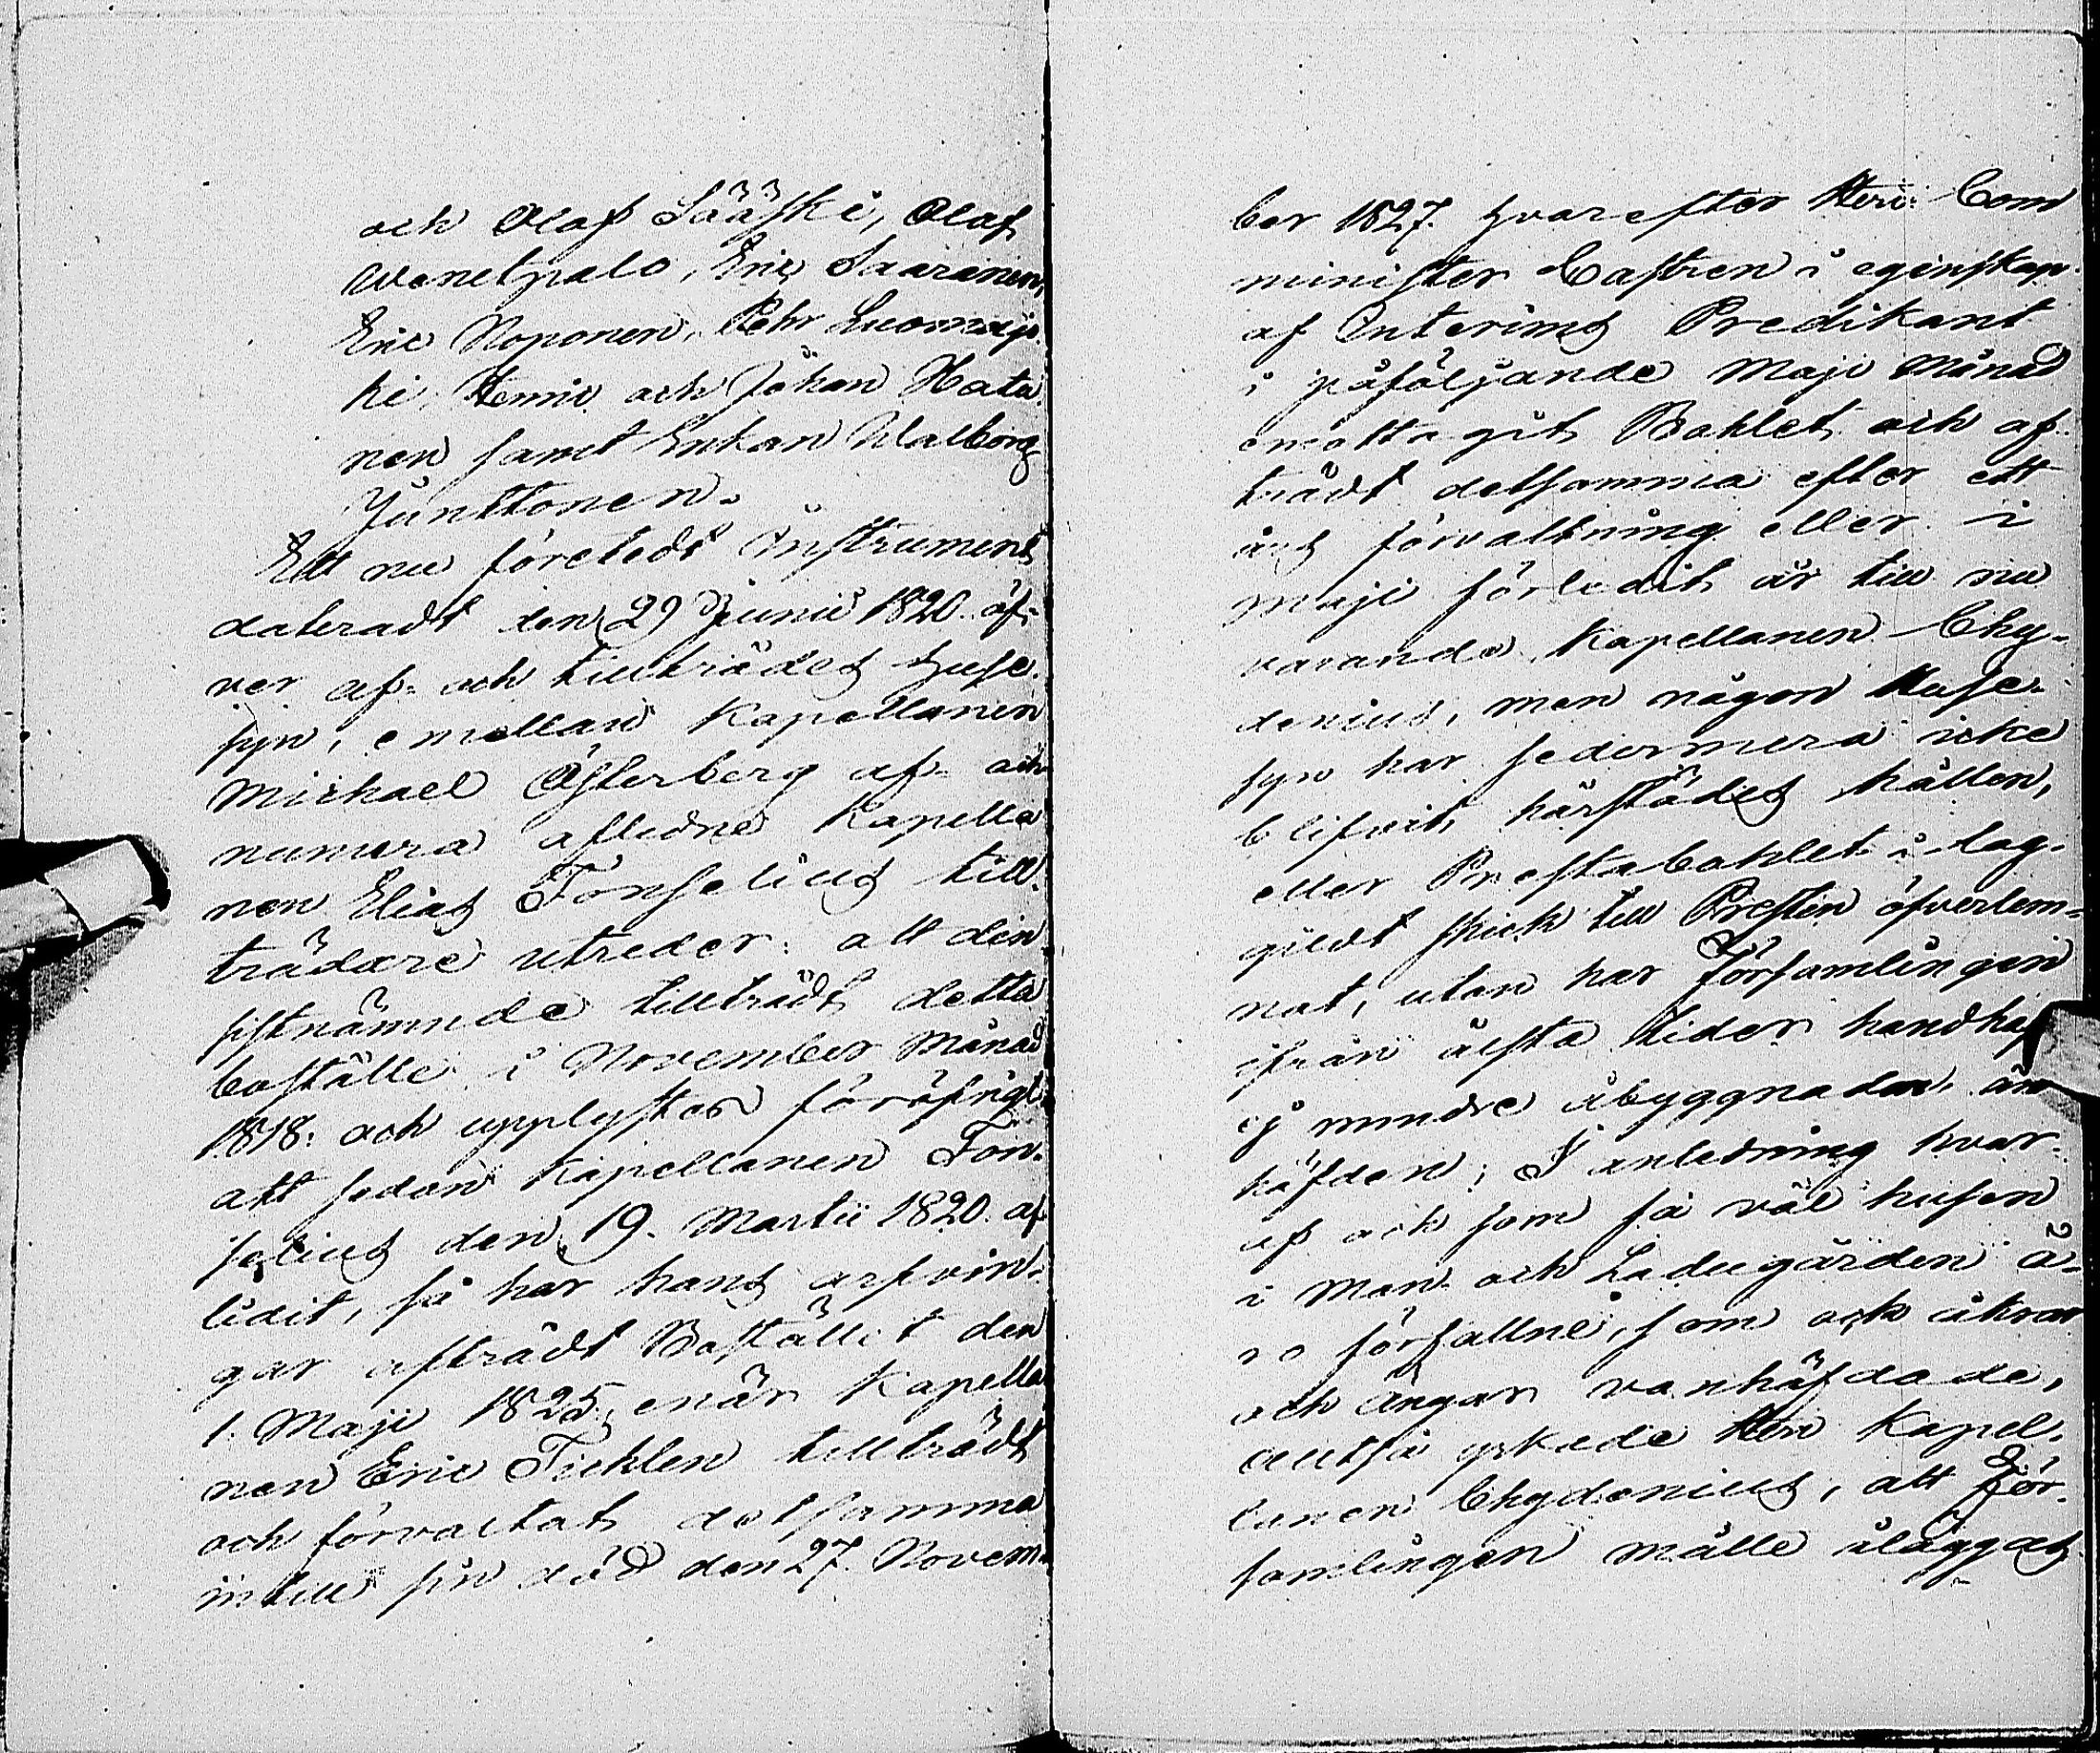 och Olof Sääski, Olof
Wenetpalo, Eric Saarinen,
Eric Noponen, Pehr Luomajo-
ki, Henric och Johan Hata-
nen samt Enkan Walborg
Junttonen.
Ett nu företedt Instrument
dateradt den 29 Junii 1820. öf-
ver af- och tillträdes Huse-
syn, emellan Kapellanen
Michael Österberg af- och
numera aflidne Kapella-
nen Elias Fonselius till-
trädare utreder: att den
sistnämnde tillträdt detta
boställe i November Månad
1818. och upplystes föröfrigt
att sedan Kapellanen Fon-
selius den 19. Martii 1820. af-
lidit, så har hans arfvin-
gar afträdt Bostället den
1. Maji 1825, enär Kapella-
nen Eric Ticklen tillträdt
och förvaltat detsamma
intill sin död den 27. Novem-
ber 1827. hvarefter Herr Com-
minister Castren i egenskap
af Interims Predikant
i påföljande Maji Månad
emottagit Bohlet och af-
trädt detsamma efter ett
års förvaltning eller i
Maji förledit år till nu
varande Kapellanen Chy-
denius, men någon Huse-
syn har sedermera icke
blifvit härstädes hållen,
eller Prestabohlet i lag-
gildt skick till Presten öfverlem-
nat, utan har Församlingen
ifrån älsta tider handhaft
ej mindre åbyggnaden än
häfden; I anledning hvar-
af och som så väl husen
i Man- och Ladugården ä-
ro förfallne, som ock åkrar
och ängar vanhäfdade,
alltså yrkade Herr Kapel-
lanen Chydenius, att För-
samlingen måtte åläggas